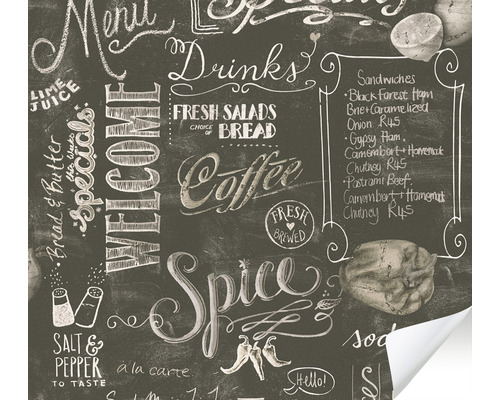 Menu
Drinks
LIME
JUICE
FRESH SALADS
CHOICE OF BREAD
WELCOME
Specials
Bread & Butter
Coffee
FRESH
BREWED
Sandwiches
• Black Forest Ham
Brie + Caramelized
Onion R45
• Gypsy Ham,
Camembert + Homemade
Chutney R45
• Pastrami Beef,
Camembert + Homemade
Chutney R45
Spice
SALT &
PEPPER
TO TASTE
à la carte
Hello!